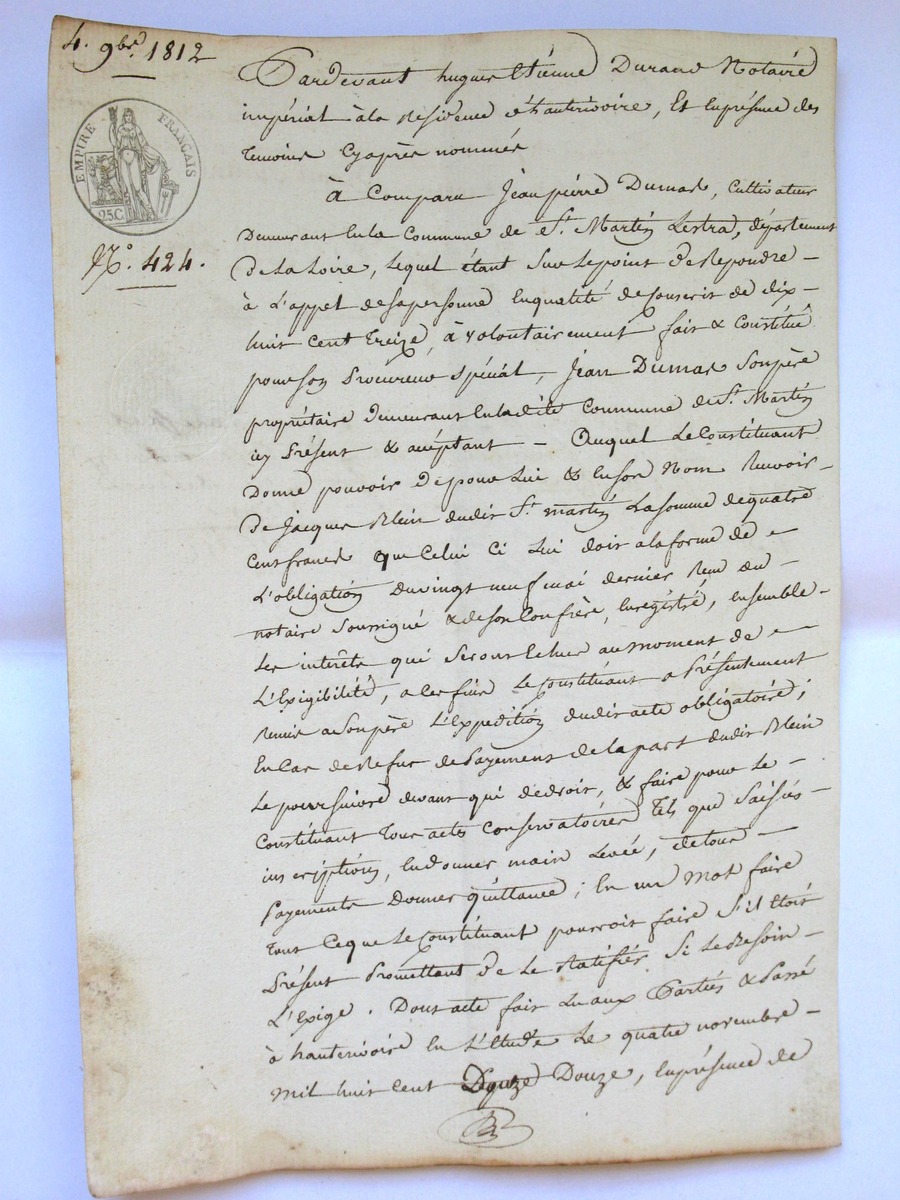 4. 9bre. 1812
EMPIRE FRANÇAIS
25 C.
N.° 424.
Pardevant hugues Etienne Durand Notaire
impérial à la Residence d'hauterivoire, Et en présence des
temoins cyaprès nommés
à Comparu Jean pierre Dumas, cultivateur
Demeurant En la Commune de St. Martin Lestra, département
De La Loire, Lequel étant sur Le point de Repondre –
à L'appel de sa personne En qualité de Conscrit de dix –
huit Cent Treize, à volontairement fait & Constitué
pour son Procureur spécial, Jean Dumas son père
propriétaire Demeurant En ladite Commune de St. Martin
icy Présent & acceptant – Auquel Le Constituant
Donne pouvoir De pour Lui & En son Nom Recevoir –
De Jacques Blein dudit St. martin La somme de quatre
Cent francs que Celui Ci Lui doit a la forme de –
L'obligation Du vingt neuf mai dernier Reçu du –
notaire soussigné & de son Confrère, Enregistré, ensemble –
Les intérêts qui seront Echus au moment de –
L'Exigibilité, a ces fins Le Constituant a Présentement
Remis a son père L'Expedition dudit acte obligatoire;
En Cas de Refus de Payement de la part dudit Blein
Le poursuivre devant qui de droit, & faire pour Le –
Constituant Tous actes Conservatoires Tels que Saisies –
inscriptions, En donner main Levée, de tous –
Payements Donner quittance; En un mot faire
Tout Ce que Le Constituant pourroit faire s'il Etoit
Présent Promettant De Le Ratifier si Le Besoin –
L'Exige. Dont acte fait Lu aux Parties & Passé
à hauterivoire En L'Etude Le quatre novembre –
mil huit Cent Douze Douze, En présence de